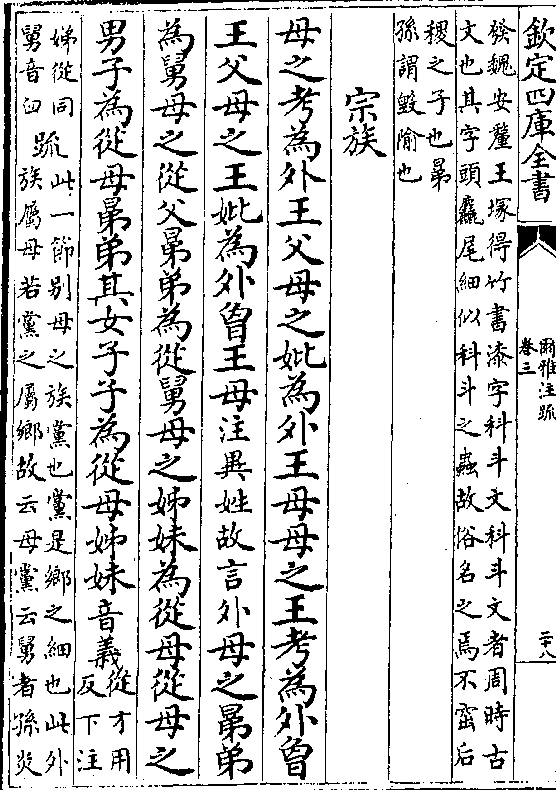 欽定四庫全書
爾雅注疏
卷三
二十八
發魏安釐王塚得竹書漆字科斗文科斗文者周時古
文也其字頭麤尾細似科斗之蟲故俗名之焉不窋后
稷之子也晜
孫謂毀隃也
宗族
母之考為外王父母之妣為外王母母之王考為外曾
王父母之王妣為外曾王母注異姓故言外母之晜弟
為舅母之從父晜弟為從舅母之姊妹為從母從母之
男子為從母晜弟其女子子為從母姊妹音義
從才用
反下注
娣從同
舅音臼
疏
此一節别母之族黨也黨是鄉之細也此外
族屬母若黨之屬鄉故云母黨云舅者孫炎